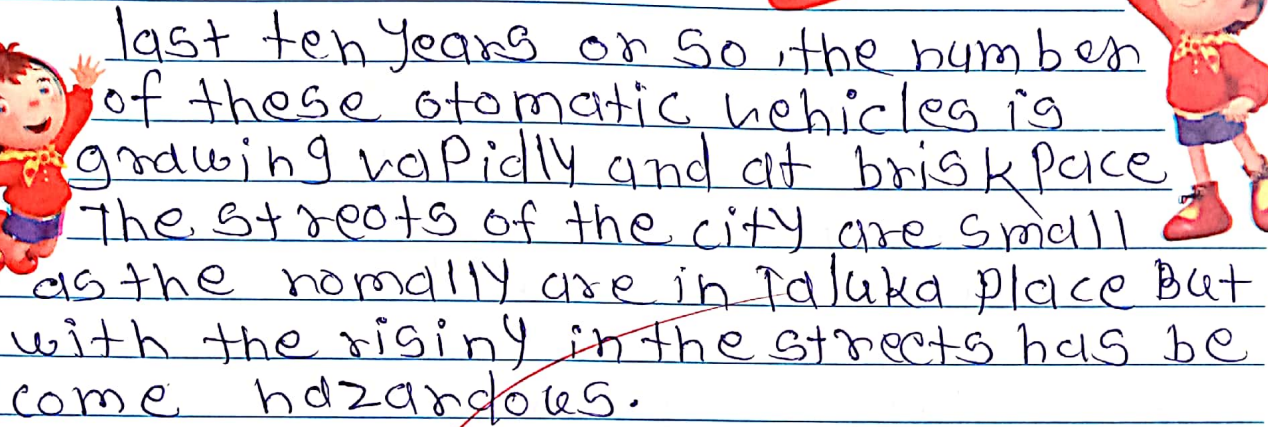 last ten years or so, the number
of these otomatic vehicles is
growing rapidly and at brisk pace
The streots of the city are small
as the nomally are in Taluka place But
with the risiny in the streets has be
come hazardous.